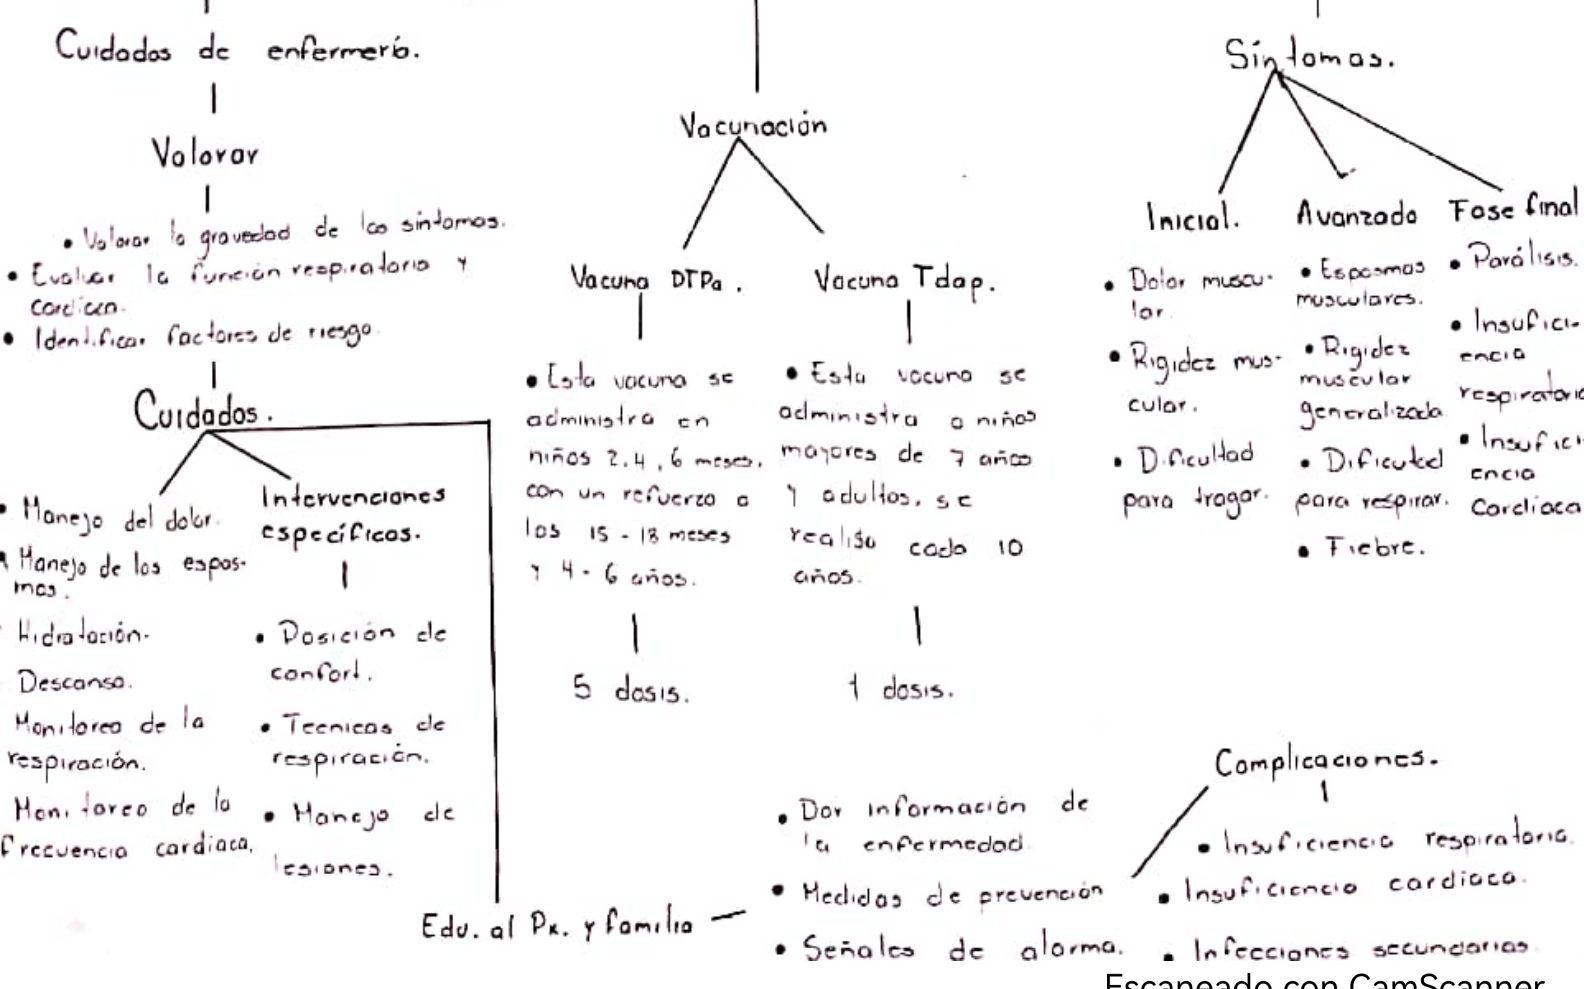 Cuidados de enfermería.
Valorar
• Valorar la gravedad de los síntomas.
• Evaluar la función respiratoria y
cardíaca.
• Identificar factores de riesgo.
Cuidados.
• Manejo del dolor.
• Manejo de los espas-
mos.
Hidratación.
Descanso.
Monitoreo de la
respiración.
Monitoreo de la
frecuencia cardiaca.
Intervenciones
específicas.
• Posición de
confort.
• Tecnicas de
respiración.
• Manejo de
lesiones.
Edu. al Px. y familia
• Dar información de
la enfermedad
• Medidas de prevención
• Señales de alarma.
Vacunación
Vacuna DTPa.
• Esta vacuna se
administra en
niños 2,4,6 meses,
con un refuerzo a
los 15 - 18 meses
y 4 - 6 años.
5 dosis.
Vacuna Tdap.
• Esta vacuna se
administra a niños
mayores de 7 años
y adultos, se
realisa cada 10
años.
1 dosis.
Síntomas.
Inicial.
• Dolor muscu-
lar.
• Rigidez mus-
cular.
• Dificultad
para tragar.
Avanzado
• Espasmos
musculares.
• Rigidez
muscular
generalizada
• Dificultad
para respirar.
• Fiebre.
Fase final
• Parálisis.
• Insufici-
encia
respiratoria
• Insufici-
encia
Cardiaca
Complicaciones.
• Insuficiencia respiratoria.
• Insuficiencia cardiaca.
• Infecciones secundarias.
Escaneado con CamScanner